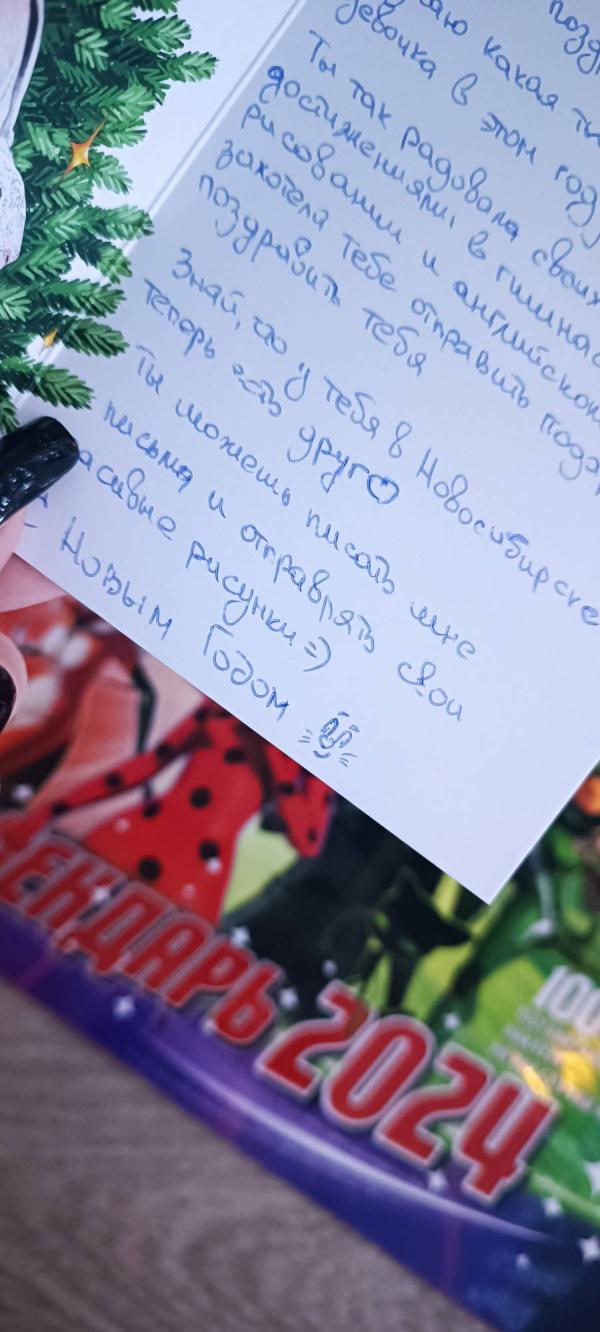 позд
какая ты
девочка в этом году
Ты так радовала своих
достижениями в гимнас
рисовании и английском
захотела тебе отправить пода
поздравить тебя
Знай, что у тебя в Новосибирске
теперь есть друг♡
Ты можешь писать мне
письма и отправлять свои
асивые рисунки =)
Новым Годом
ЕНДАРЬ 2024
100